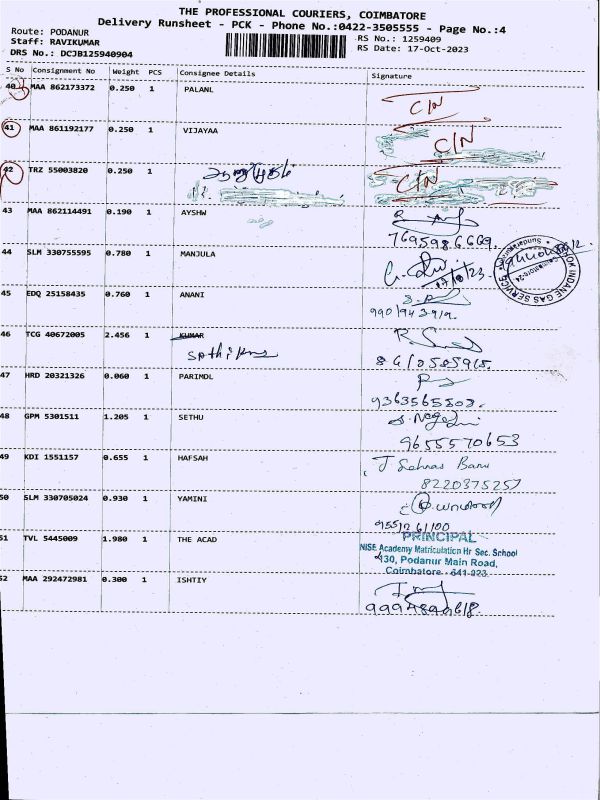 THE PROFESSIONAL COURIERS, COIMBATORE
Delivery Runsheet - PCK - Phone No.:0422-3505555 - Page No.:4
Route: PODANUR
Staff: RAVIKUMAR
DRS No.: DCJB125940904
RS No.: 1259409
RS Date: 17-Oct-2023
S No Consignment No Weight PCS Consignee Details Signature
40 MAA 862173372 0.250 1 PALANL C/N
41 MAA 861192177 0.250 1 VIJAYAA C/N
42 TRZ 55003820 0.250 1 C/N
43 MAA 862114491 0.190 1 AYSHW
7695986669.
44 SLM 330755595 0.780 1 MANJULA
17/10/23
INDANE GAS SERVICE
45 EDQ 25158435 0.760 1 ANANI
46 TCG 40672005 2.456 1 KUMAR
8610585965.
47 HRD 20321326 0.060 1 PARIMDL
9363565508.
48 GPM 5301511 1.205 1 SETHU
9655570653
49 KDI 1551157 0.655 1 HAFSAH
8220375257
50 SLM 330705024 0.930 1 YAMINI
9551261100
51 TVL 5445009 1.980 1 THE ACAD PRINCIPAL
NISE Academy Matriculation Hr Sec. School
430, Podanur Main Road,
Coimbatore - 641 023.
52 MAA 292472981 0.300 1 ISHTIY